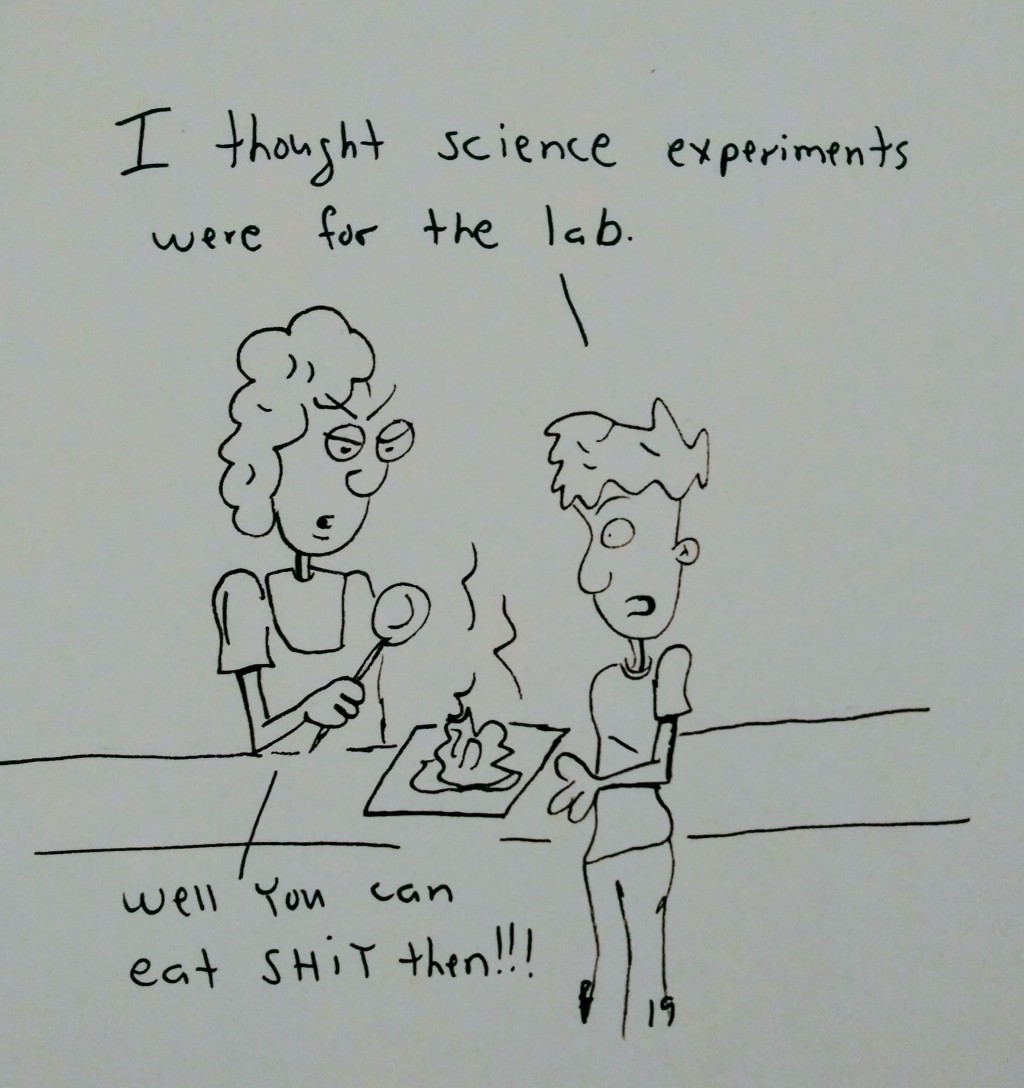 I thought science experiments
were for the lab.
well You can
eat SHiT then!!!
19